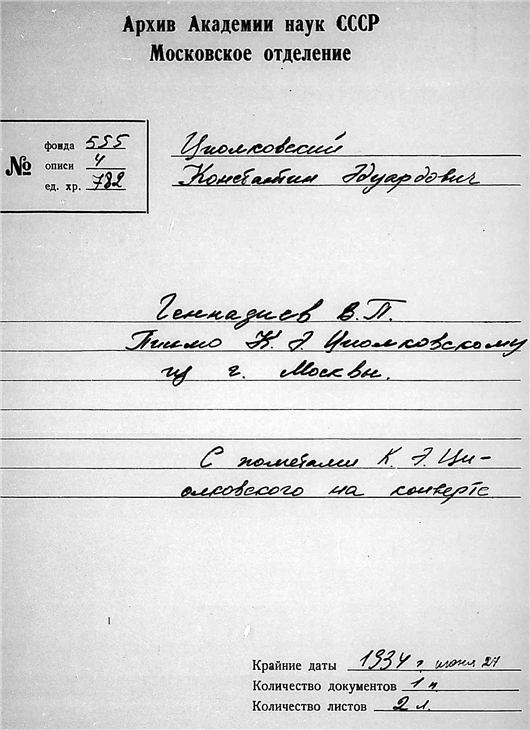 Архив Академии наук СССР
Московское отделение
№
фонда 555
описи 4
ед. хр. 782
Циолковский
Константин Эдуардович
Геннадиев В.П.
Письмо К. Э. Циолковскому
из г. Москвы.
С пометами К. Э. Ци-
олковского на конверте
Крайние даты 1934 г. июня 27
Количество документов 1 п.
Количество листов 2 л.